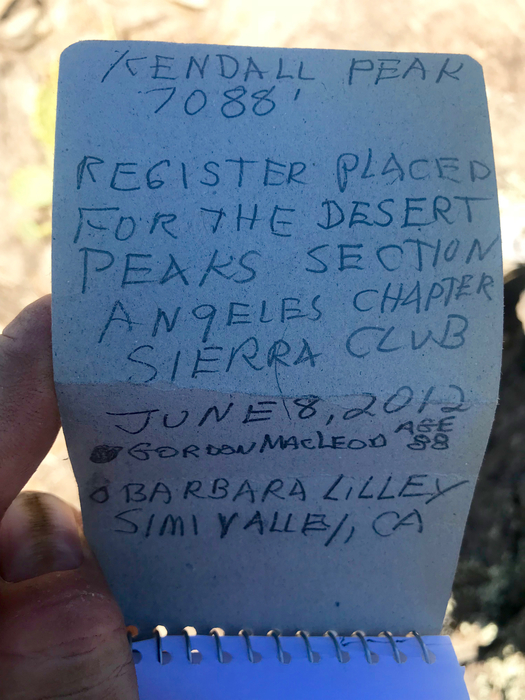 KENDALL PEAK
7088'
REGISTER PLACED
FOR THE DESERT
PEAKS SECTION
ANGELES CHAPTER
SIERRA CLUB
JUNE 8, 2012
GORDON MACLEOD AGE 88
BARBARA LILLEY
SIMI VALLEY, CA